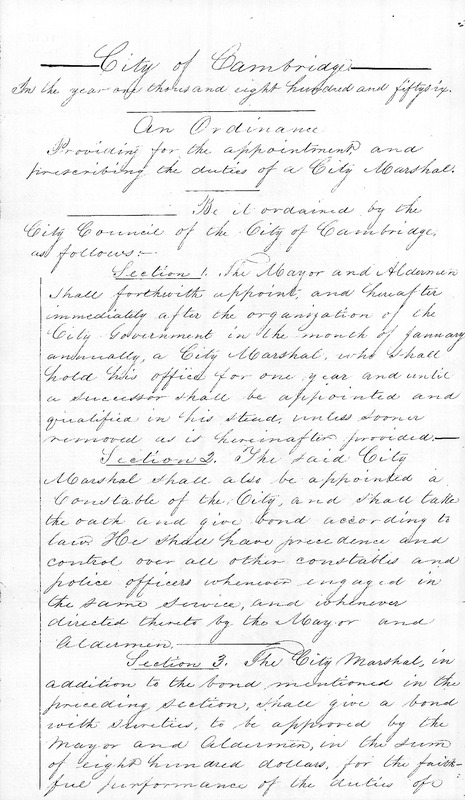 City of Cambridge
In the year one thousand eight hundred and fiftysix.
An Ordinance
Providing for the appointment and
prescribing the duties of a City Marshal.
Be it ordained by the
City Council of the City of Cambridge,
as follows:-
Section 1. The Mayor and Aldermen
shall forthwith appoint, and hereafter
immediately after the organization of the
City Government in the month of January
annually, a City Marshal, who shall
hold his office for one year and until
a successor shall be appointed and
qualified in his stead, unless sooner
removed as is hereinafter provided.—
Section 2. The said City
Marshal shall also be appointed a
Constable of the City, and shall take
the oath and give bond according to
law. He shall have precedence and
control over all other constables and
police officers whenever engaged in
the same service, and whenever
directed thereto by the Mayor and
Aldermen.
Section 3. The City Marshal, in
addition to the bond mentioned in the
preceding section, shall give a bond
with sureties, to be approved by the
Mayor and Aldermen, in the sum
of eight hundred dollars, for the faith-
ful performance of the duties of